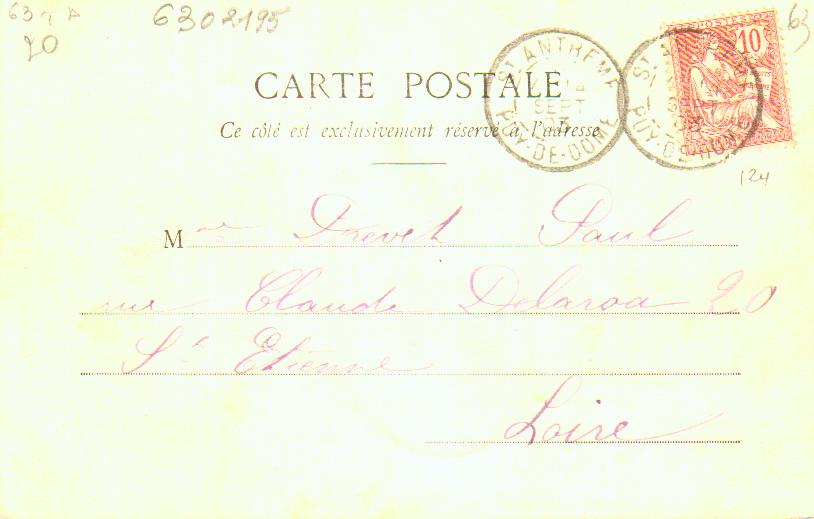 6302195
63
20
63
POSTES
10
CARTE POSTALE
Ce côté est exclusivement réservé à l'adresse
ST ANTHÈME
14
SEPT
03
PUY-DE-DOME
124
Mme Drevet Paul
rue Claude Delaroa 20
St Etienne
Loire